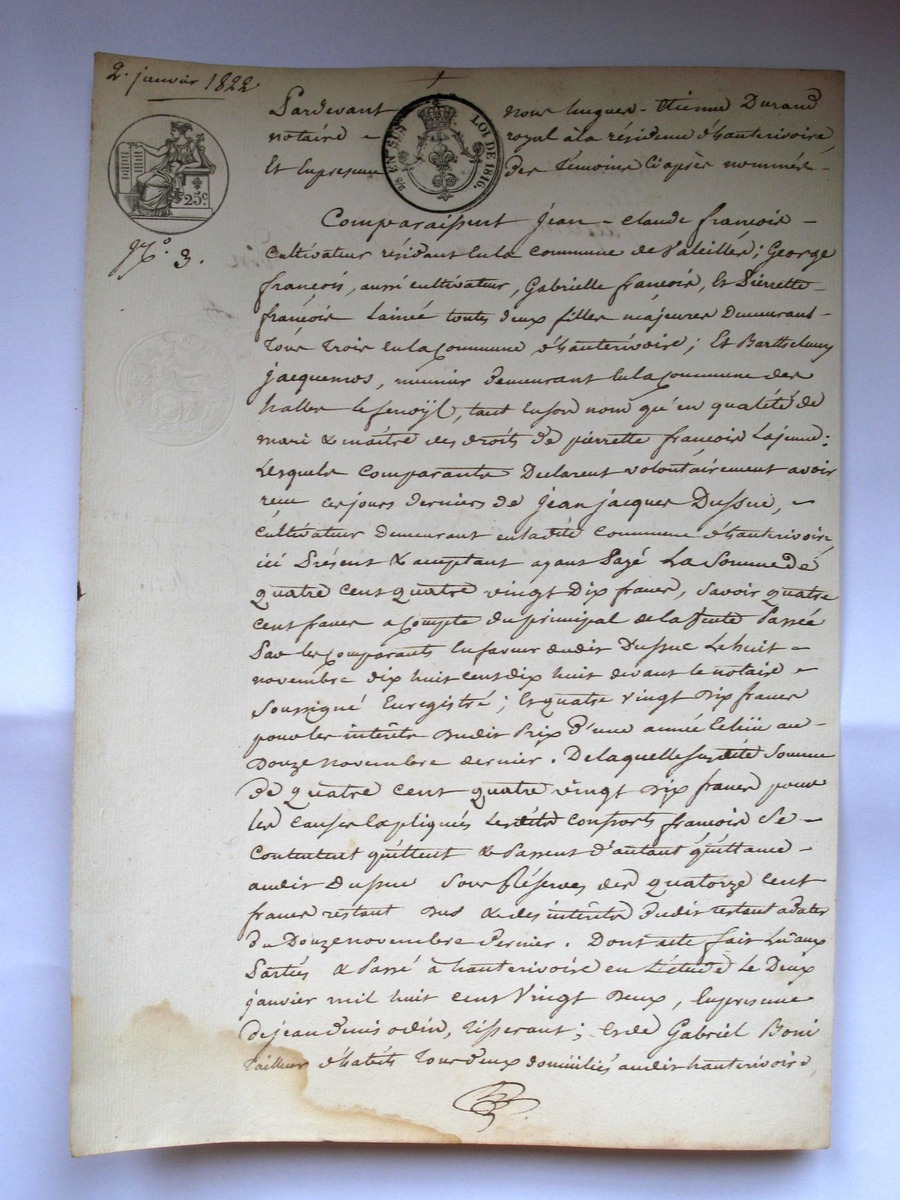 2. janvier 1822
Pardevant nous hugues-étienne Durand
notaire royal à la résidence d'hauterivoire
Et en presence des témoins ci après nommés
EN SUS
LOI DE 1816.
25c
N.° 3.
Comparaissent Jean-Claude françois
cultivateur résidant en la commune de Valeille; George
françois, aussi cultivateur, Gabrielle françois, et Pierrette
françois L'ainée toutes deux filles majeures Demeurant
Tous Trois en la Commune d'hauterivoire; Et Barthelemy
Jacquemos, meunier demeurant en la Commune des
halles le fenoÿl, tant en son nom qu'en qualité de
mari & maître des droits de pierrette françois Lajeune:
Lesquels comparants Declarent volontairement avoir
recu ces jours derniers de Jean jacques Dussuc,
cultivateur demeurant en ladite commune d'hauterivoire,
ici Présent & acceptant ayant Payé La Somme de
quatre cent quatre vingt Dix francs, Savoir quatre
cent francs a Compte du principal de la Vente Passée
Par les Comparants En faveur dudit Dussuc Le huit
novembre dix huit cent dix huit devant le notaire
Soussigné Enregistré; Et quatre vingt dix francs
pour les interêts dudit Prix d'une année Echüe au
Douze novembre dernier. De laquelle susdite Somme
de quatre cent quatre vingt dix francs pour
les causes Expliqués Lesdits consorts françois Se
Contentent quittent & Passent d'autant quittance
audit Dussuc Sous Réserves des quatorze cent
francs restant dus & des interêts dudit restant a dater
du Douze novembre Dernier. Dont acte fait Lu aux
Parties & Passé à hauterivoire en L'étude Le Deux
janvier mil huit cent Vingt Deux, En presence
de jean denis odin, Tisserant; et de Gabriel Boni
Tailleur d'habits Tous deux domiciliés audit hauterivoire,